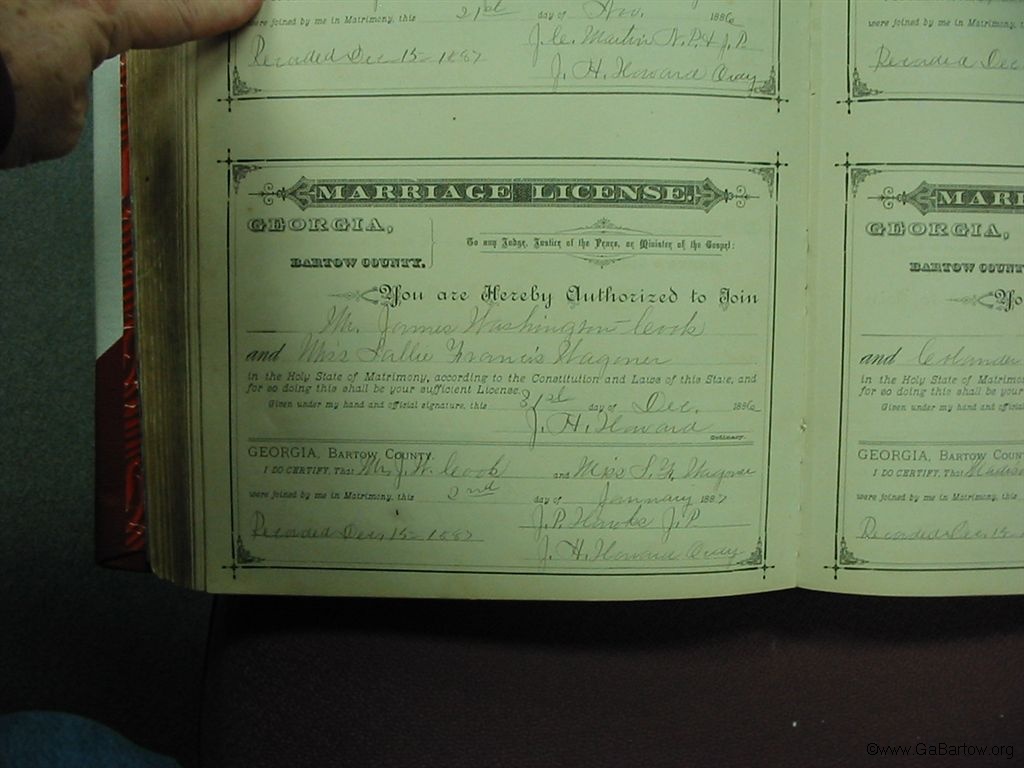 were joined by me in Matrimony, this 21st day of Nov. 1886
Recorded Dec 15 1887
J. C. Martin N.P. & J.P.
J. H. Howard Ordy
MARRIAGE LICENSE.
GEORGIA,
BARTOW COUNTY.
To any Judge, Justice of the Peace, or Minister of the Gospel:
You are Hereby Authorized to Join
Mr. James Washington Cook
and Miss Sallie Francis Wagoner
in the Holy State of Matrimony, according to the Constitution and Laws of this State, and
for so doing this shall be your sufficient License.
Given under my hand and official signature, this 31st day of Dec. 1886
J. H. Howard
Ordinary.
GEORGIA, BARTOW COUNTY.
I DO CERTIFY, That Mr J. W. Cook and Miss S. F. Wagoner
were joined by me in Matrimony, this 2nd day of January 1887
J. P. Hawks J.P
Recorded Dec, 15 1887
J. H. Howard Ordy
were joined by me in Matrimony, t
Recorded Dec
MARR
GEORGIA,
BARTOW COUNT
Yo
and
in the Holy State of Matrimon
for so doing this shall be your
Given under my hand and offici
GEORGIA, BARTOW COUN
I DO CERTIFY, That Madiso
were joined by me in Matrimony, this
Recorded Dec, 15
©www.GaBartow.org